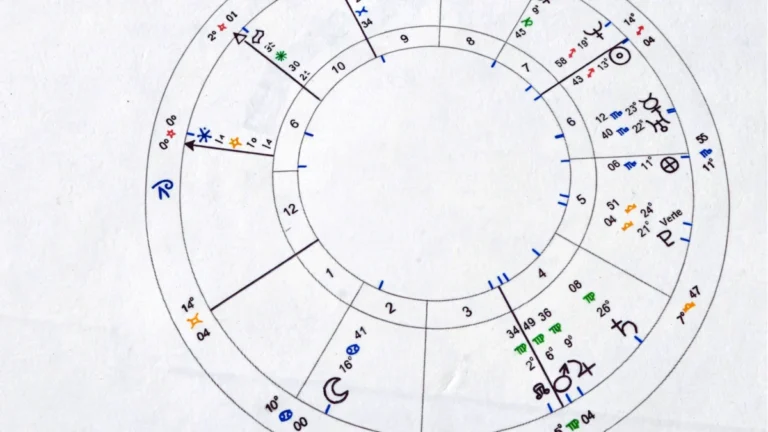 2° 01
34
45 9°
14° 04
58 19°
43 13°
30
0° 00
12 23°
40 22°
55 11°
06 11°
51 24°
04 21° Verte
7° 47
08 26°
36 9°
49 6°
34 2°
04
41 16°
10° 00
14° 04
9
8
7
6
5
4
3
2
1
12
6
10